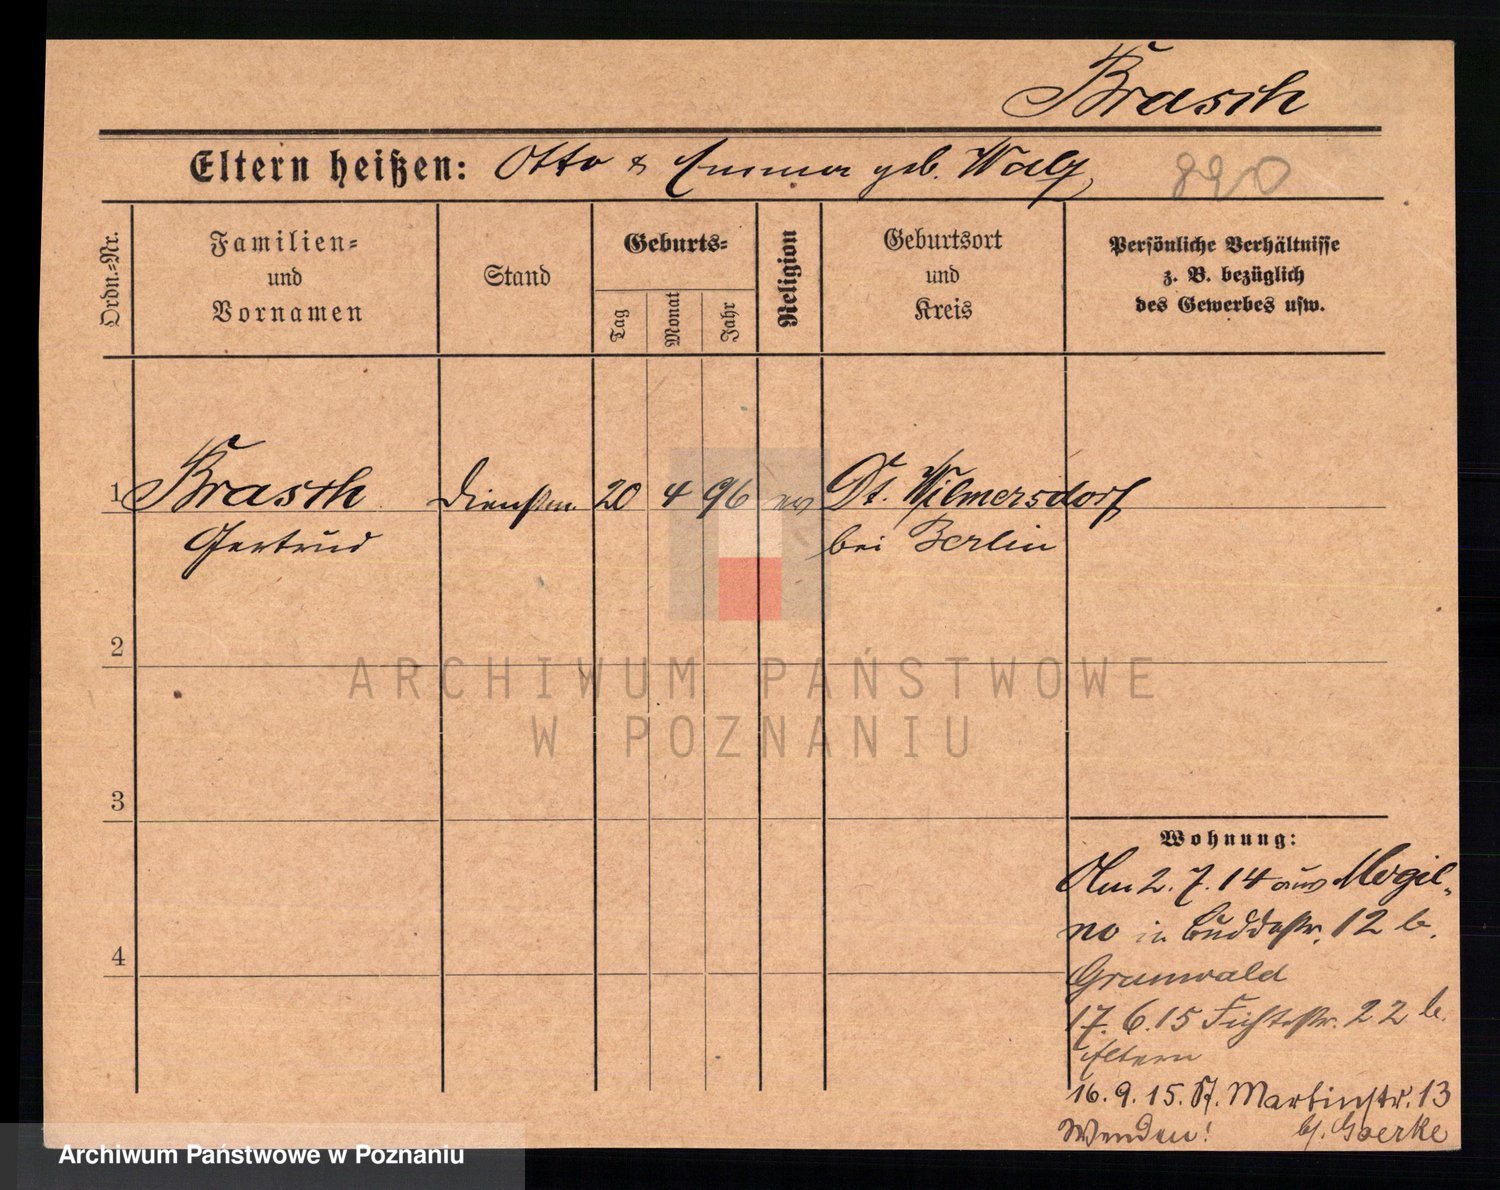 Brasch
Eltern heißen: Otto & Emma geb. Walz
890
Ordn.=Nr.
Familien=
und
Vornamen
Stand
Geburts=
Tag
Monat
Jahr
Religion
Geburtsort
und
Kreis
Persönliche Verhältnisse
z. B. bezüglich
des Gewerbes usw.
1 Brasch Dienstm. 20 4 96 ev Dt. Wilmersdorf
Gertrud bei Berlin
2
3
4
Wohnung:
Am 2. 7. 14 aus Mogil-
no in Buddestr. 12 b.
Grunwald
17. 6. 15 Fichtestr. 22 b.
Eltern
16. 9. 15. St. Martinstr. 13
Wenden! b/. Goerke
ARCHIWUM PAŃSTWOWE
W POZNANIU
Archiwum Państwowe w Poznaniu